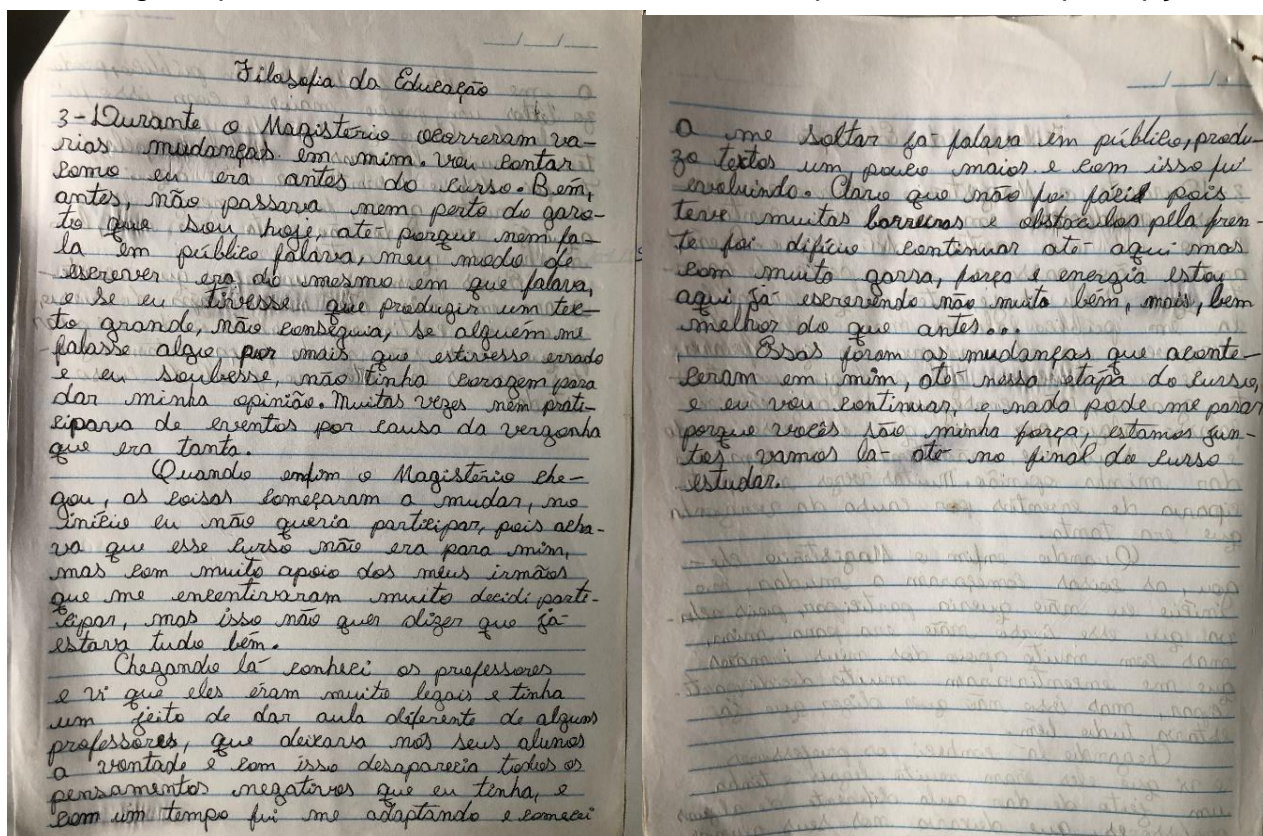 Filosofia da Educação
3- Durante o Magistério ocorreram va-
rias mudanças em mim. vou contar
como eu era antes do curso. Bem,
antes, não passava nem perto do garo-
to que sou hoje, até porque nem fa-
la em público falava, meu modo de
escrever era do mesmo em que falava,
e se eu tivesse que produzir um tex-
to grande, não conseguia, se alguém me
falasse algo, por mais que estivesse errado
e eu soubesse, não tinha coragem para
dar minha opinião. Muitas vezes nem prati-
cipava de eventos por causa da vergonha
que era tanta.
Quando enfim o Magistério che-
gou, as coisas começaram a mudar, no
início eu não queria participar, pois acha-
va que esse curso não era para mim,
mas com muito apoio dos meus irmãos
que me encentivaram muito decidi parti-
cipar, mas isso não quer dizer que já
estava tudo bem.
Chegando lá conheci os professores
e vi que eles eram muito legais e tinha
um jeito de dar aula diferente de alguns
professores, que deixava nos seus alunos
a vontade e com isso desaparecia todos os
pensamentos negativos que eu tinha, e
com um tempo fui me adaptando e comecei
a me soltar já falava em público, produ-
zo textos um pouco maior e com isso fui
evoluindo. Claro que não foi fácil pois
teve muitas barreiras e obstáculos pela fren-
te foi difícil continuar até aqui mas
com muito garra, força e energia estou
aqui já escrevendo não muito bem, mais, bem
melhor do que antes...
Essas foram as mudanças que aconte-
ceram em mim, até nessa etapa do curso,
e eu vou continuar, e nada pode me parar
porque vocês são minha força, estamos jun-
tos vamos lá até no final do curso
estudar.